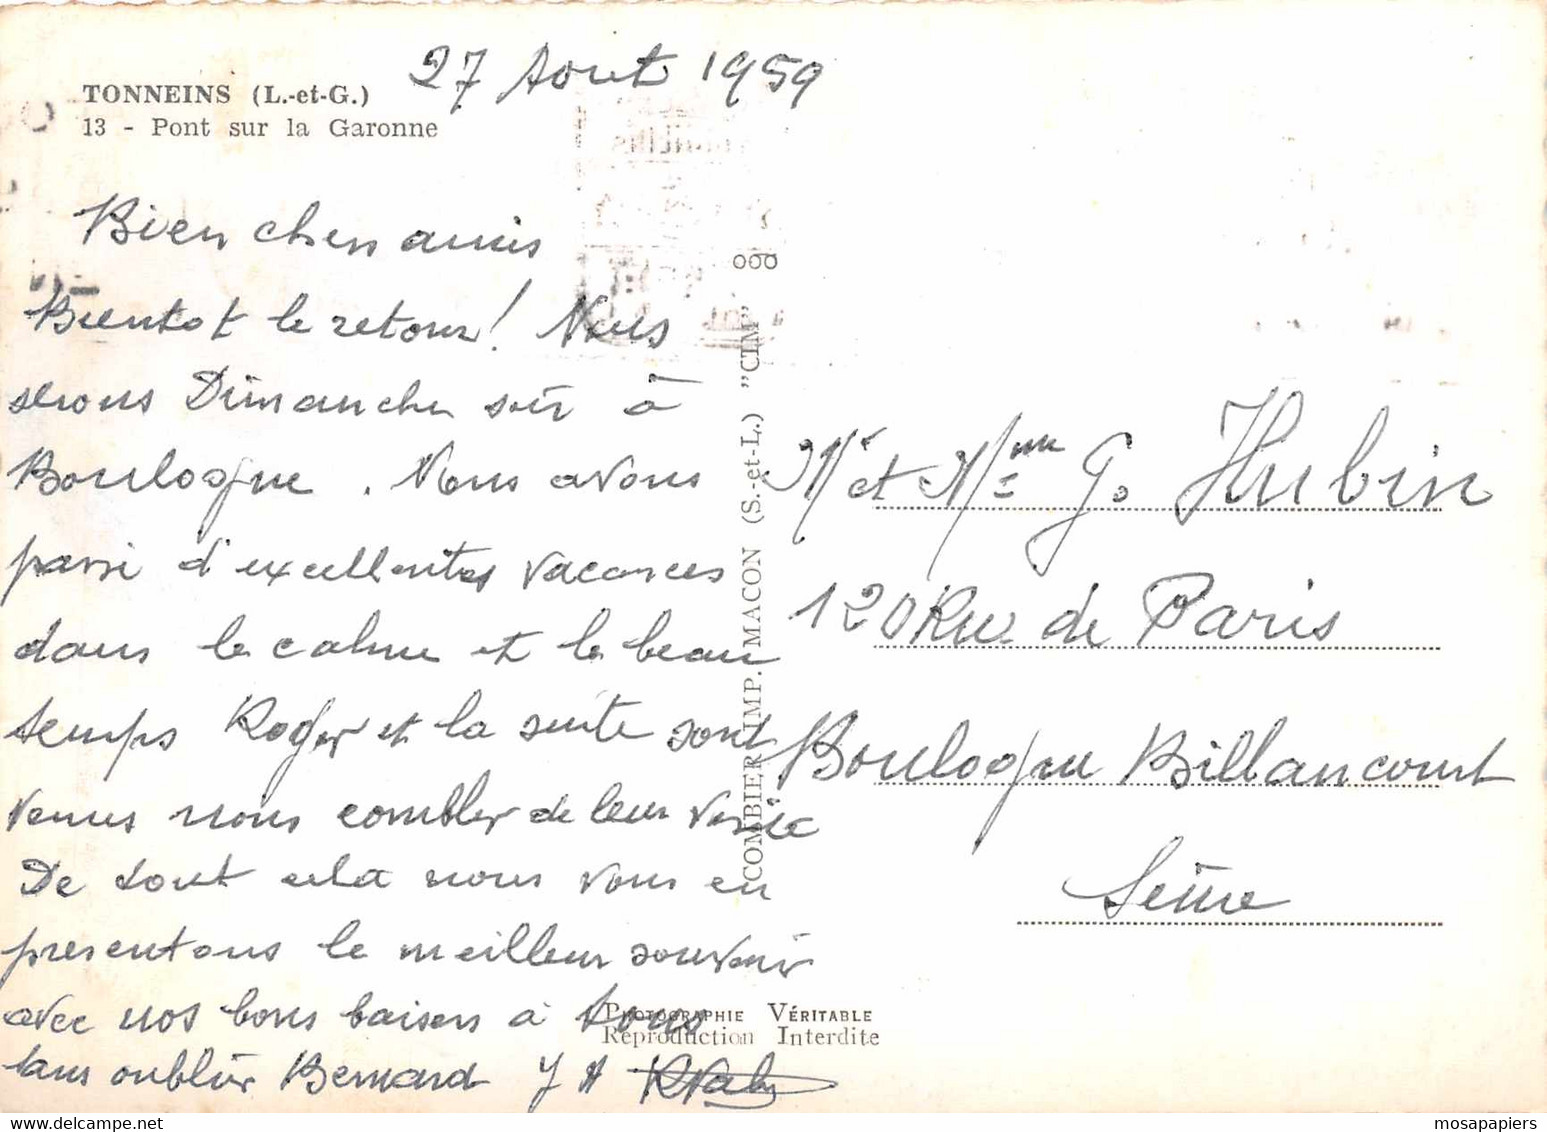 TONNEINS (L.-et-G.)
13 - Pont sur la Garonne
27 Aout 1959
Bien chers amis
Bientot le retour! Nous
serons Dimanche soir à
Boulogne. Nous avons
passé d'excellentes vacances
dans le calme et le beau
temps Roger et la suite sont
venus nous combler de leur visite
De tout cela nous vous en
presentons le meilleur souvenir
avec nos bons baisers à tous
sans oublier Bernard Y A
COMBIER IMP. MACON (S.-et-L.) "CIM"
PHOTOGRAPHIE VÉRITABLE
Reproduction Interdite
Mr et Mme G. Hubin
120 Rue de Paris
Boulogne Billancourt
Seine
mosapapiers